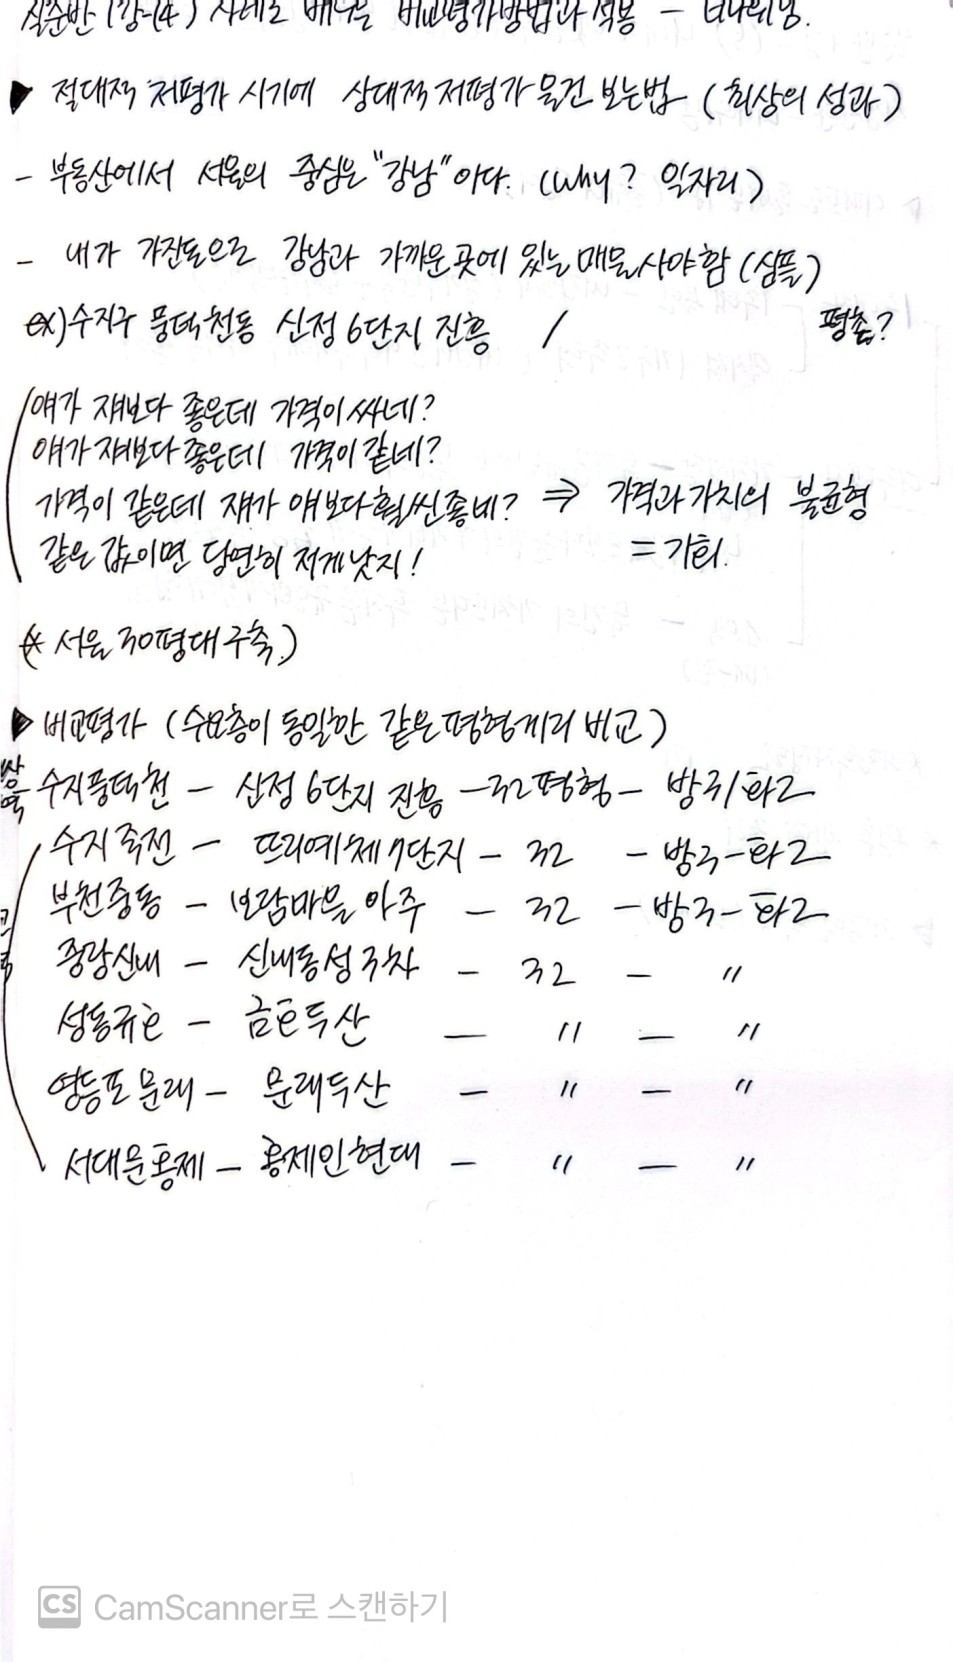 실준반 1강-(4) 사례로 배우는 비교평가방법과 적용 - 너나위님.
▶ 절대적 저평가 시기에 상대적 저평가 물건 보는법 (최상의 성과)
- 부동산에서 서울의 중심은 "강남"이다. (why? 일자리)
- 내가 가진돈으로 강남과 가까운 곳에 있는 매물 사야함 (심플)
ex) 수지구 풍덕천동 신정6단지 진흥 / 평촌?
얘가 쟤보다 좋은데 가격이 싸네?
얘가 쟤보다 좋은데 가격이 같네?
가격이 같은데 쟤가 얘보다 훨씬 좋네? ⇒ 가격과 가치의 불균형
같은 값이면 당연히 저게 낫지! = 기회.
(* 서울 30평대 구축.)
▶ 비교평가 (수요층이 동일한 같은 평형끼리 비교)
수지풍덕천 - 신정 6단지 진흥 - 32평형 - 방3/화2
수지 죽전 - 뜨리에체 7단지 - 32 - 방3-화2
부천중동 - 보람마을 아주 - 32 - 방3-화2
중랑신내 - 신내동성 3차 - 32 - "
성동금호 - 금호두산 - " - "
영등포 문래 - 문래두산 - " - "
서대문홍제 - 홍제인현대 - " - "
CS CamScanner로 스캔하기